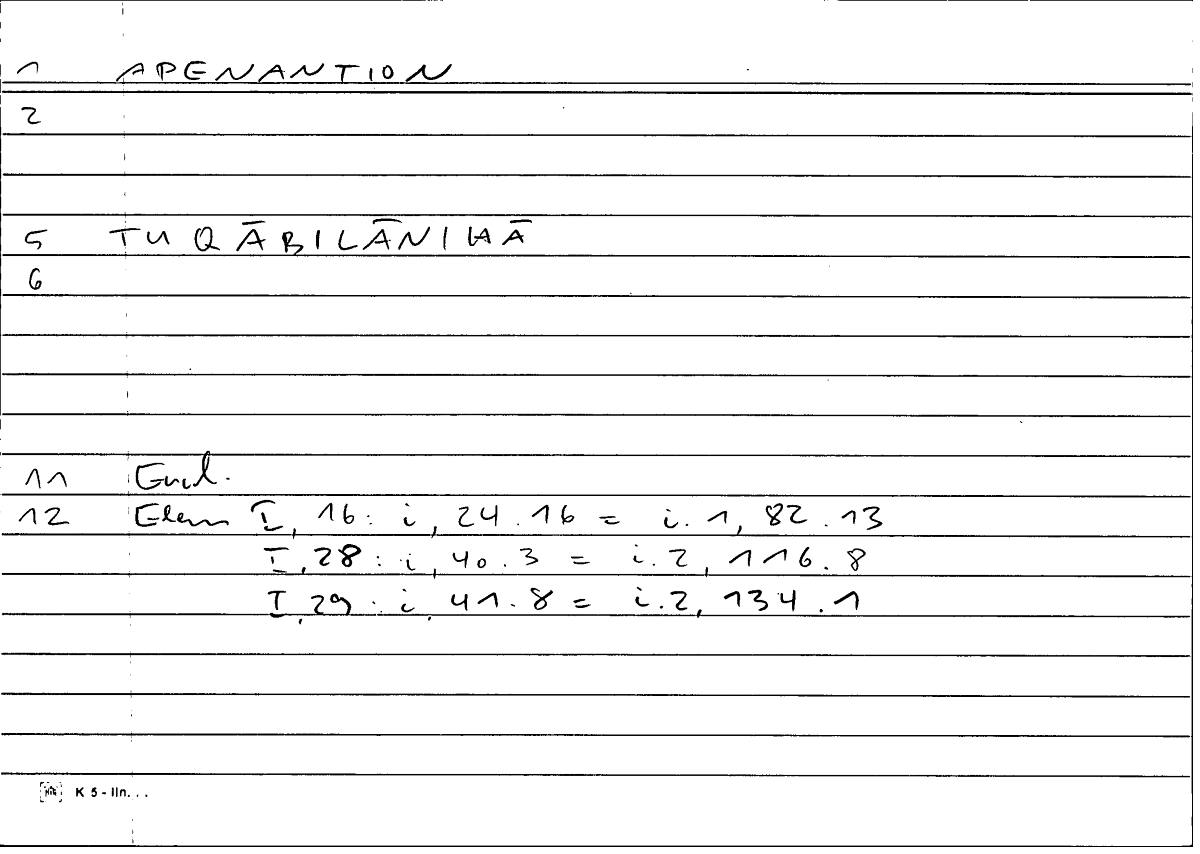 1 APENANTION
2
5 TUQĀBILĀNIHĀ
6
11 Eucl.
12 Elem I, 16: i, 24.16 = i.1, 82.13
I, 28: i, 40.3 = i.2, 116.8
I, 29: i, 41.8 = i.2, 134.1
K 5 - lln. . .